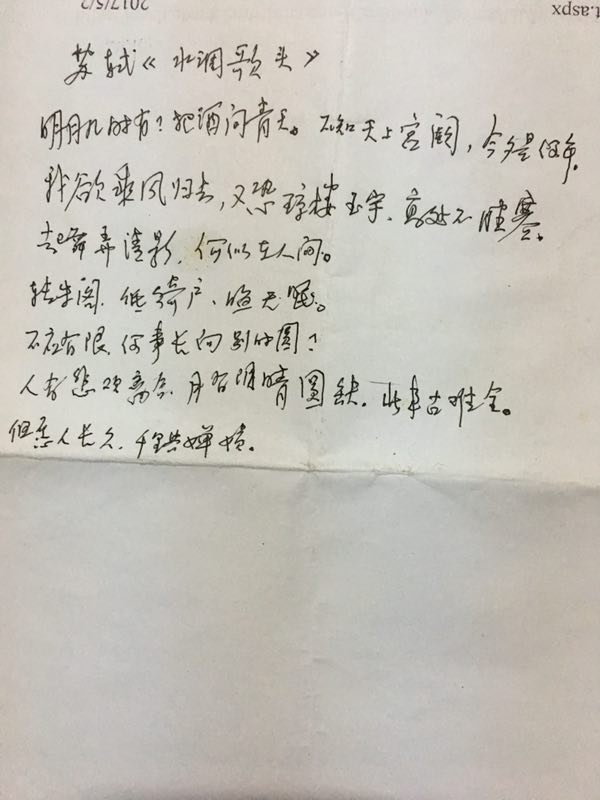 2017/5/2
t.aspx
苏轼《水调歌头》
明月几时有？把酒问青天。不知天上宫阙，今夕是何年。
我欲乘风归去，又恐琼楼玉宇、高处不胜寒。
起舞弄清影，何似在人间。
转朱阁、低绮户、照无眠。
不应有恨，何事长向别时圆？
人有悲欢离合、月有阴晴圆缺，此事古难全。
但愿人长久，千里共婵娟。